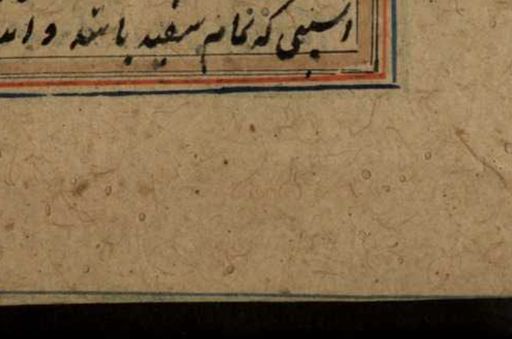 اسپی که تمام سفید باشد و اند